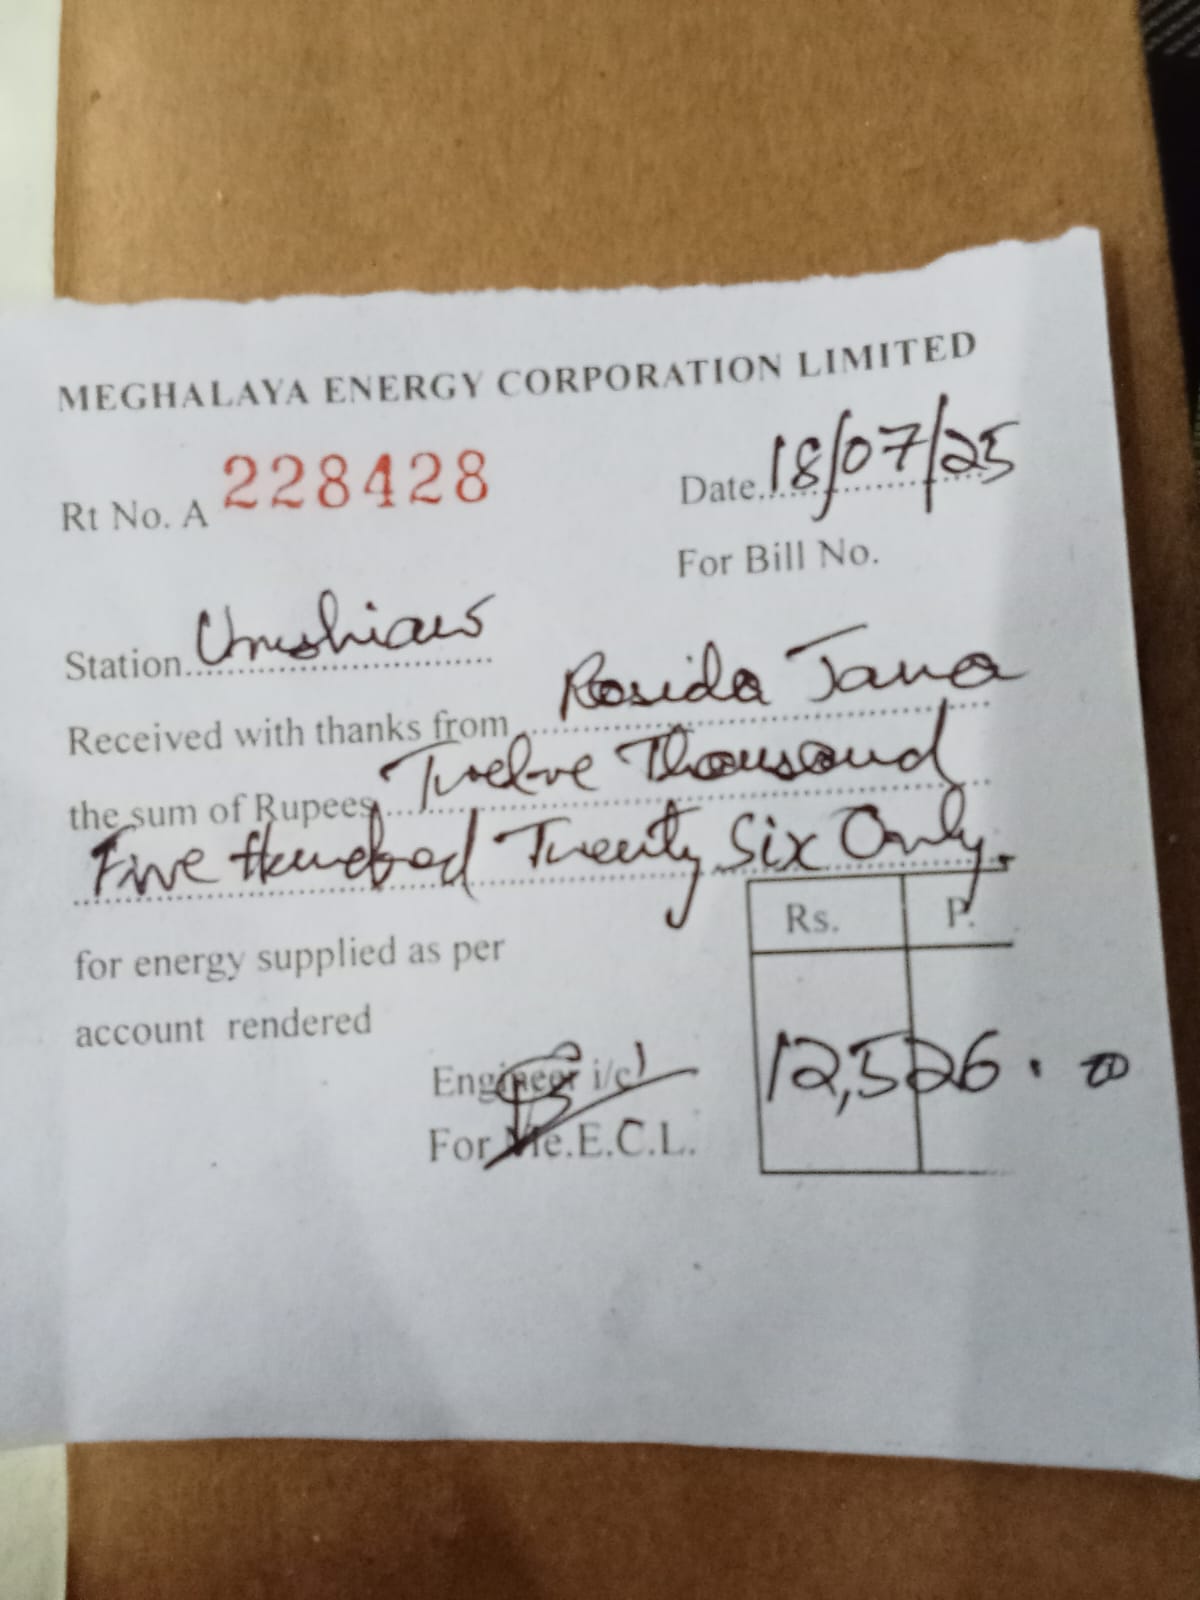 MEGHALAYA ENERGY CORPORATION LIMITED
Rt No. A 228428 Date 18/07/25
For Bill No.
Station Umshiaw
Received with thanks from Rosida Jana
the sum of Rupees Twelve Thousand
Five Hundred Twenty Six Only.
Rs. P.
for energy supplied as per
account rendered
Engineer i/c 12,526.00
For Me.E.C.L.